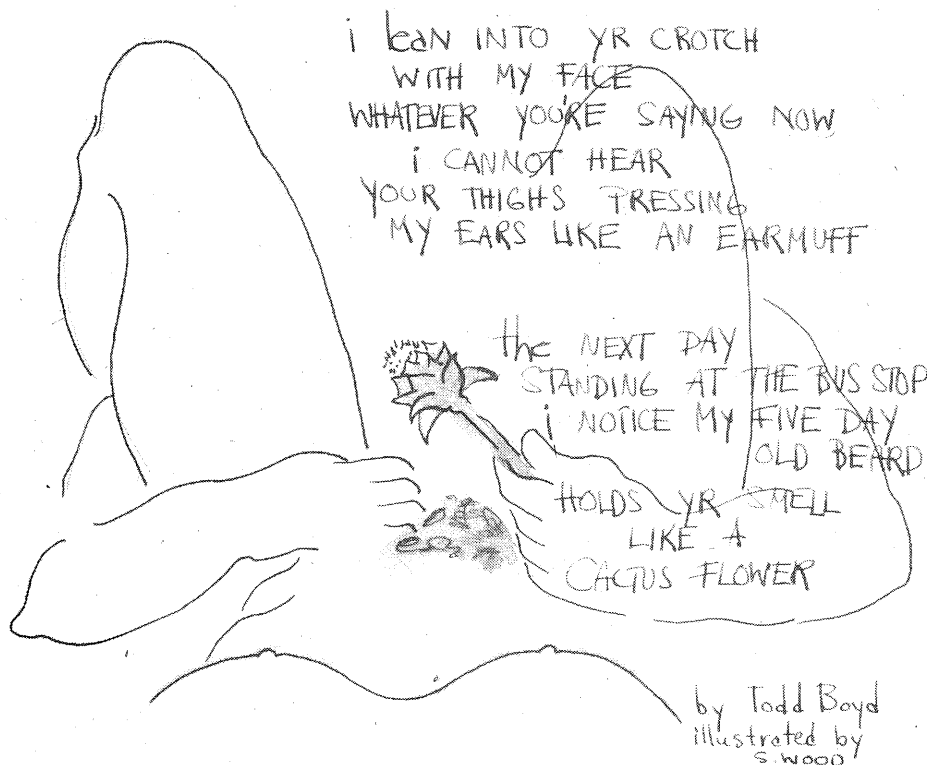 i lean INTO YR CROTCH
WITH MY FACE
WHATEVER YOU'RE SAYING NOW
i CANNOT HEAR
YOUR THIGHS PRESSING
MY EARS LIKE AN EARMUFF
the NEXT DAY
STANDING AT THE BUS STOP
i NOTICE MY FIVE DAY
OLD BEARD
HOLDS YR SMELL
LIKE A
CACTUS FLOWER
by Todd Boyd
illustrated by
S. WOOD